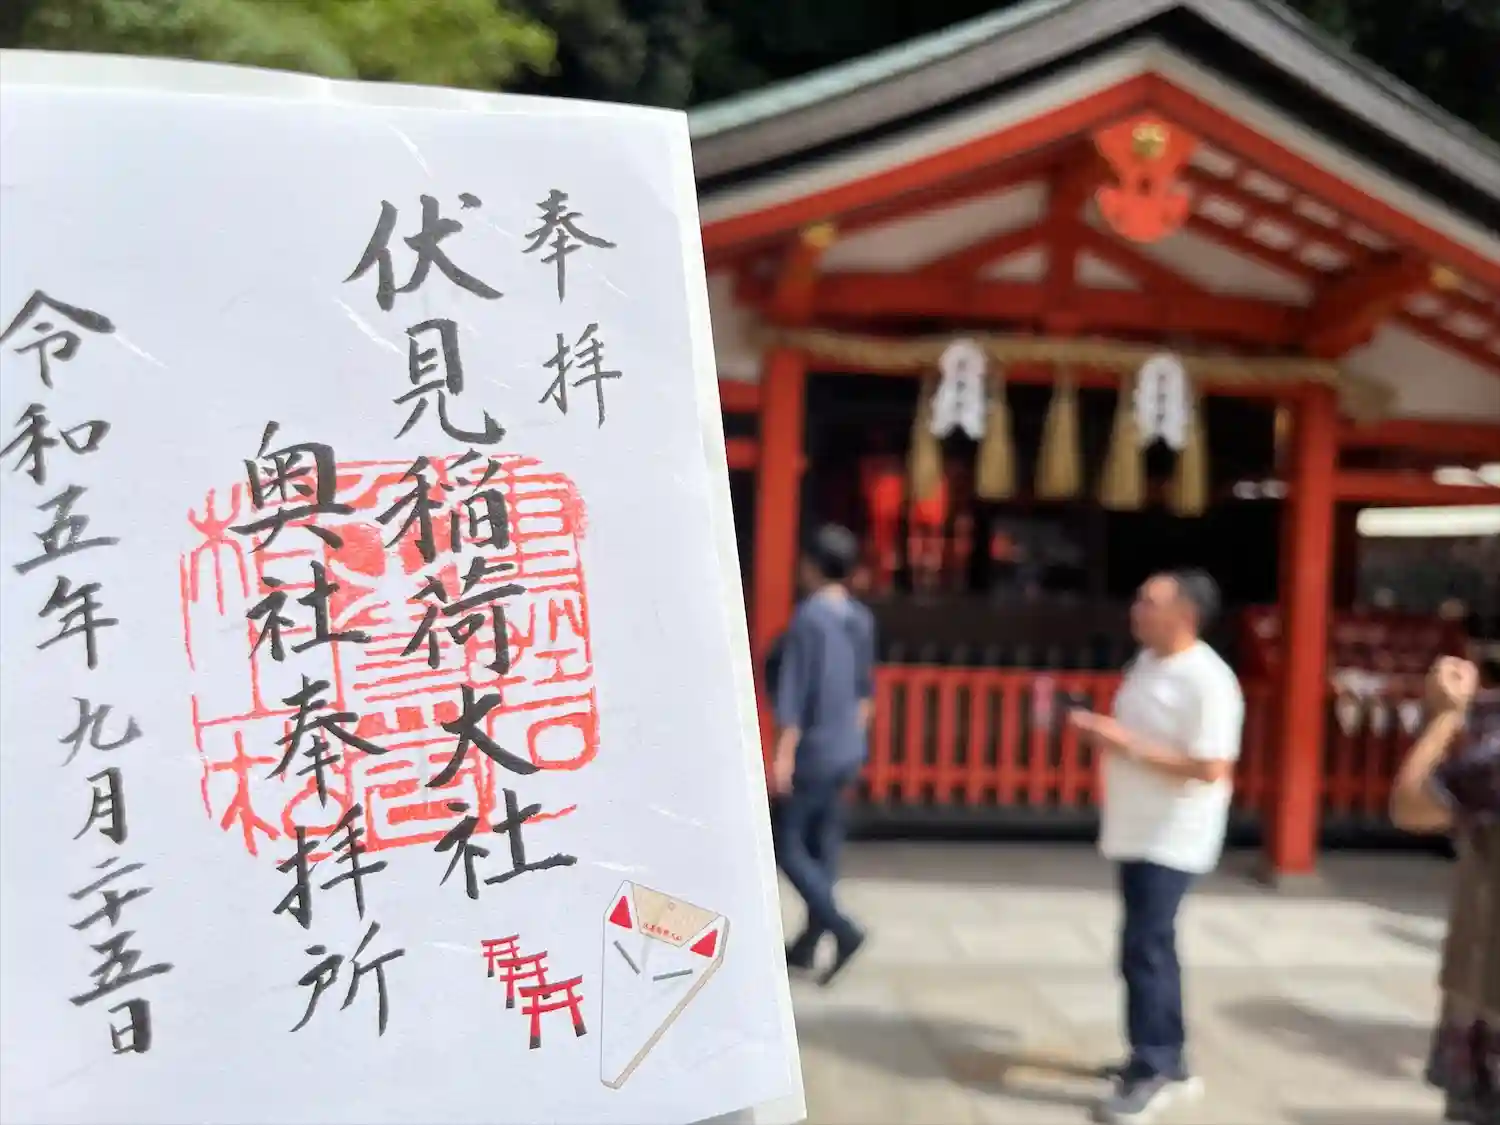 奉拝
伏見稲荷大社
奥社奉拝所
令和五年九月二十五日